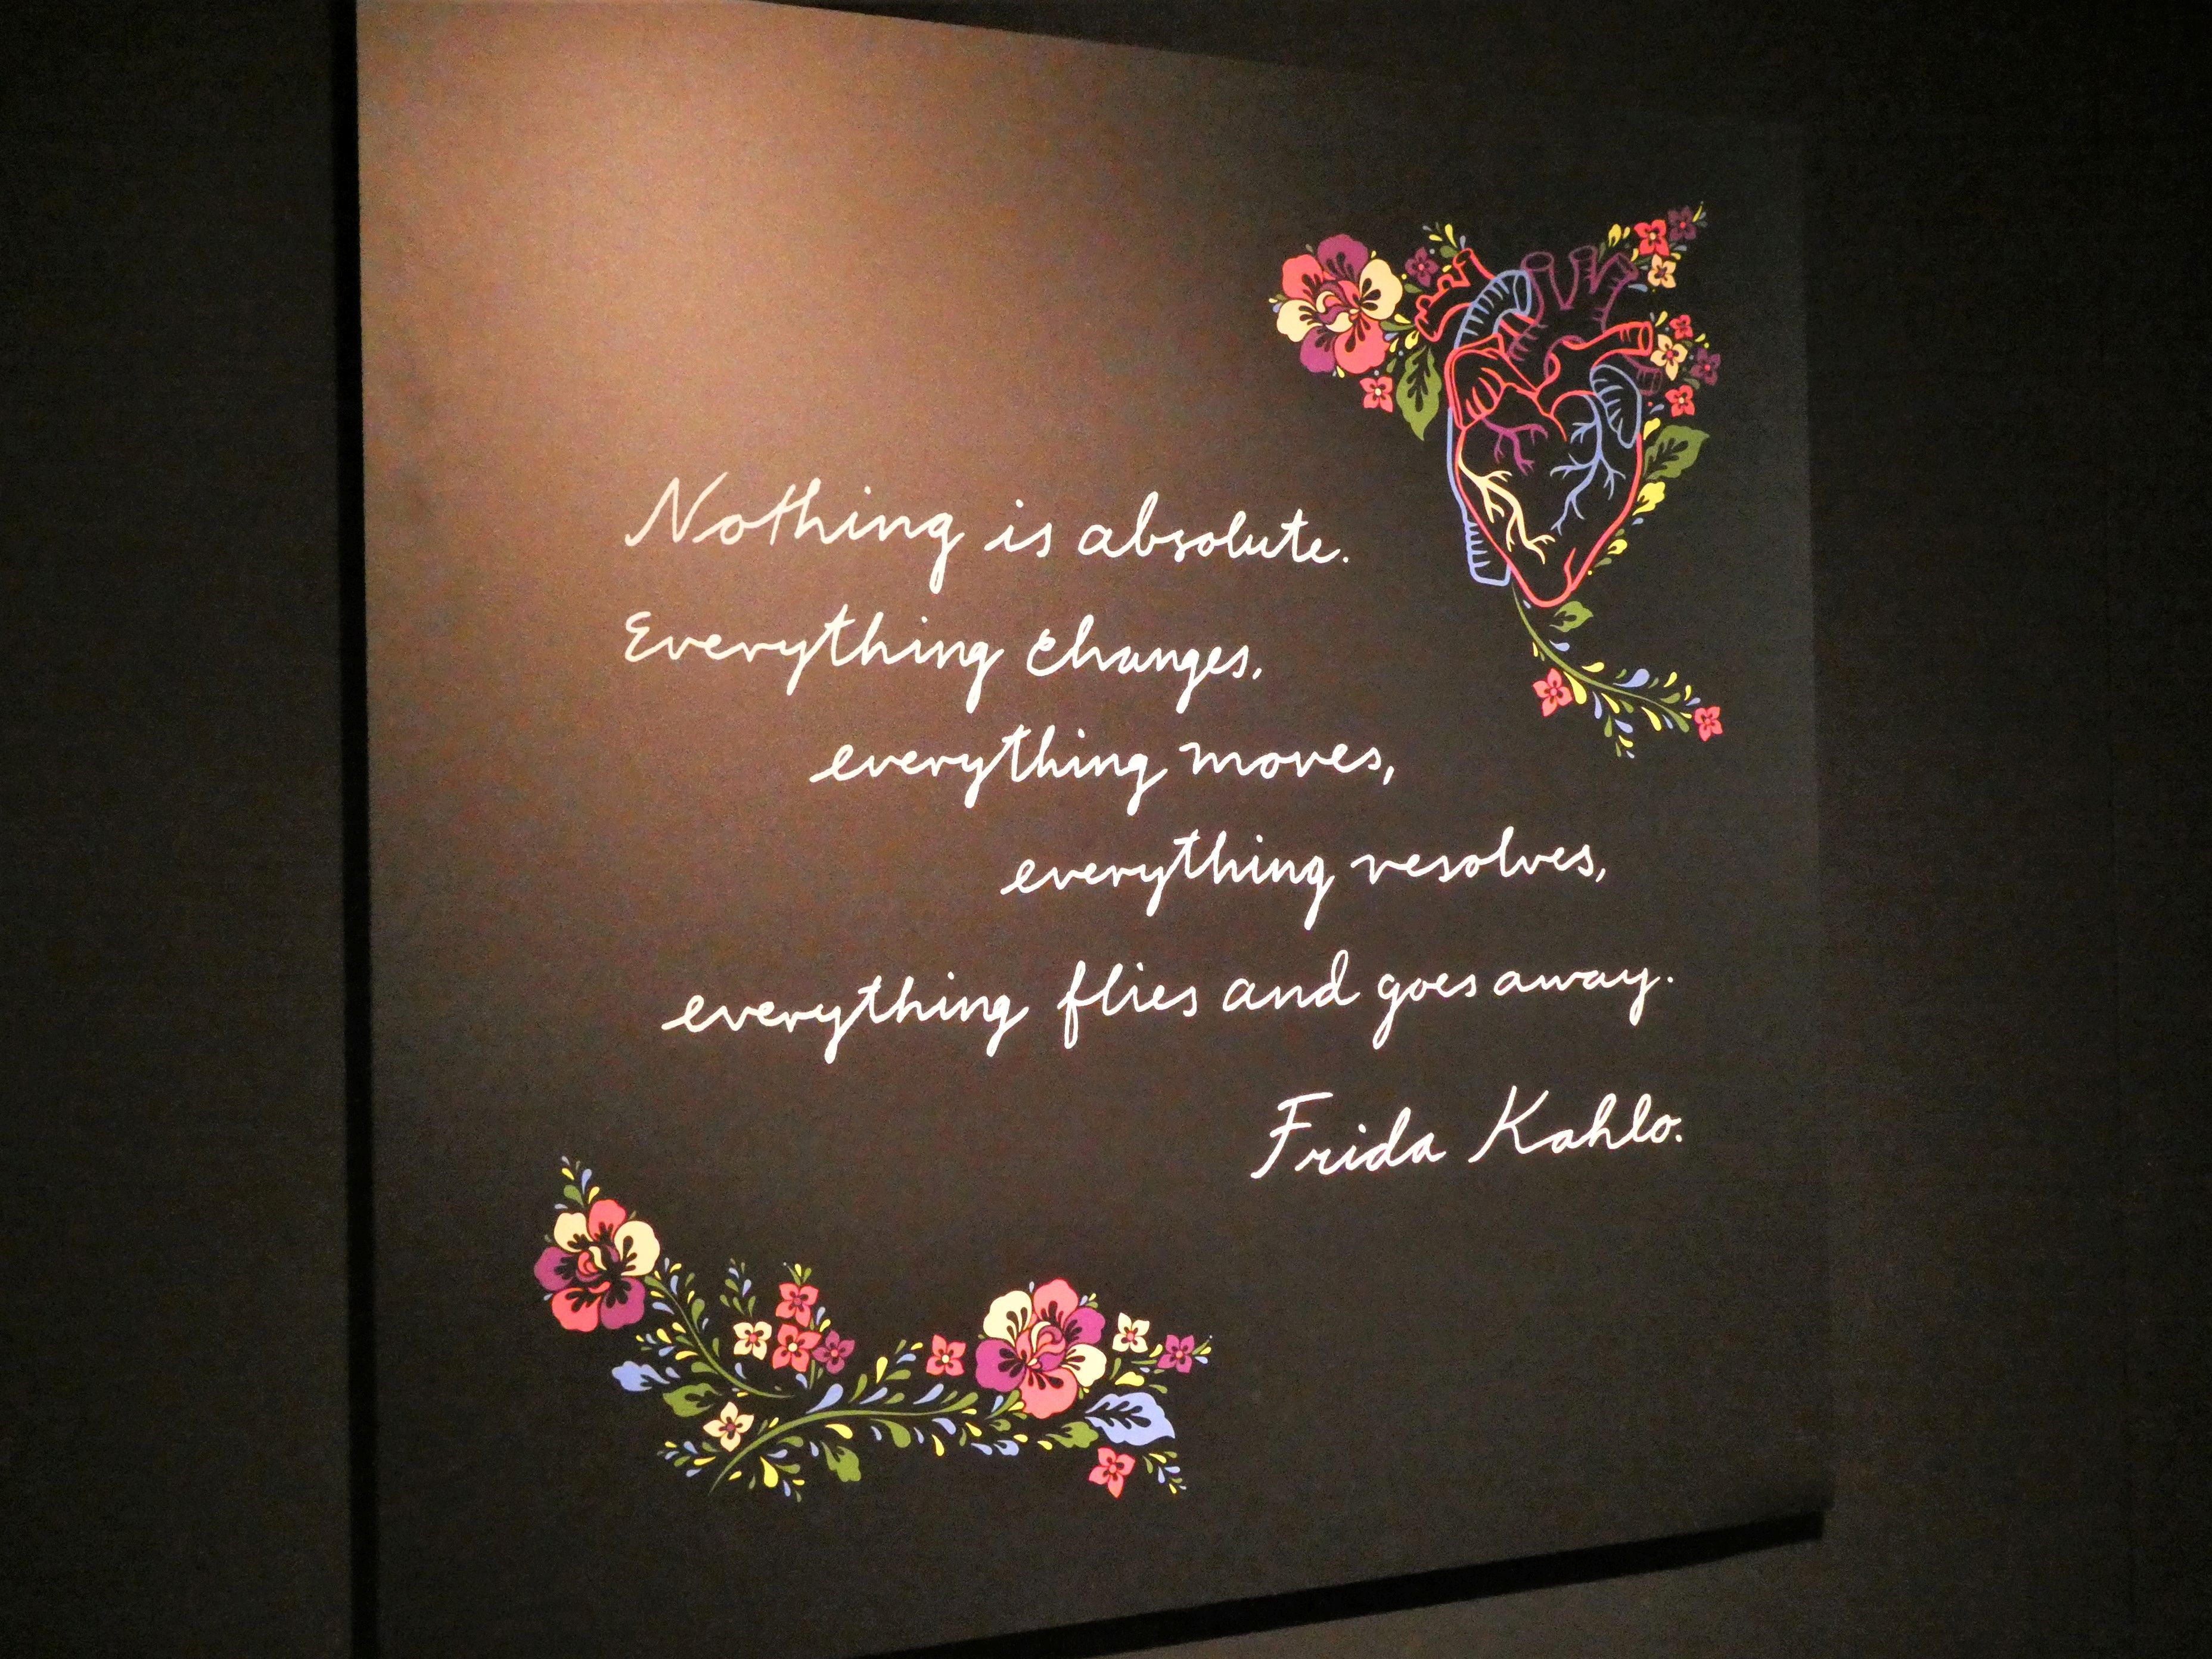 Nothing is absolute.
Everything changes,
everything moves,
everything resolves,
everything flies and goes away.
Frida Kahlo.